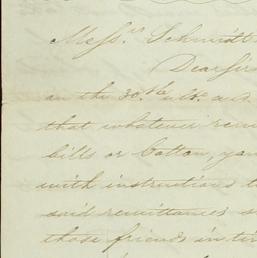 Mess.rs Schmidt
Dear Sir
on the 30.th ult.
that whatever rem
bills or Cotton, you
with instructions t
said remittances s
those friends in ti